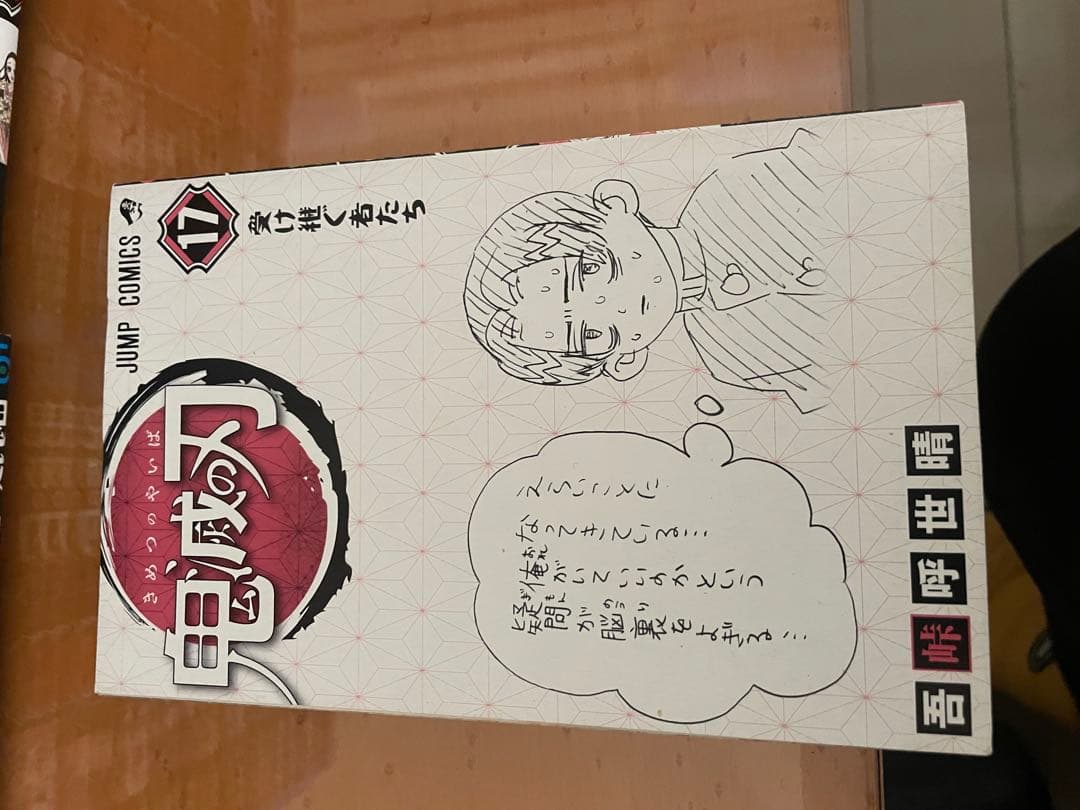 JUMP COMICS
17
受け継ぐ者たち
きめつのやいば
鬼滅の刃
えらいことに
なってきている…
おれ
俺がいていいのかという
ぎもん のうり
疑問が脳裏をよぎる…
吾峠呼世晴